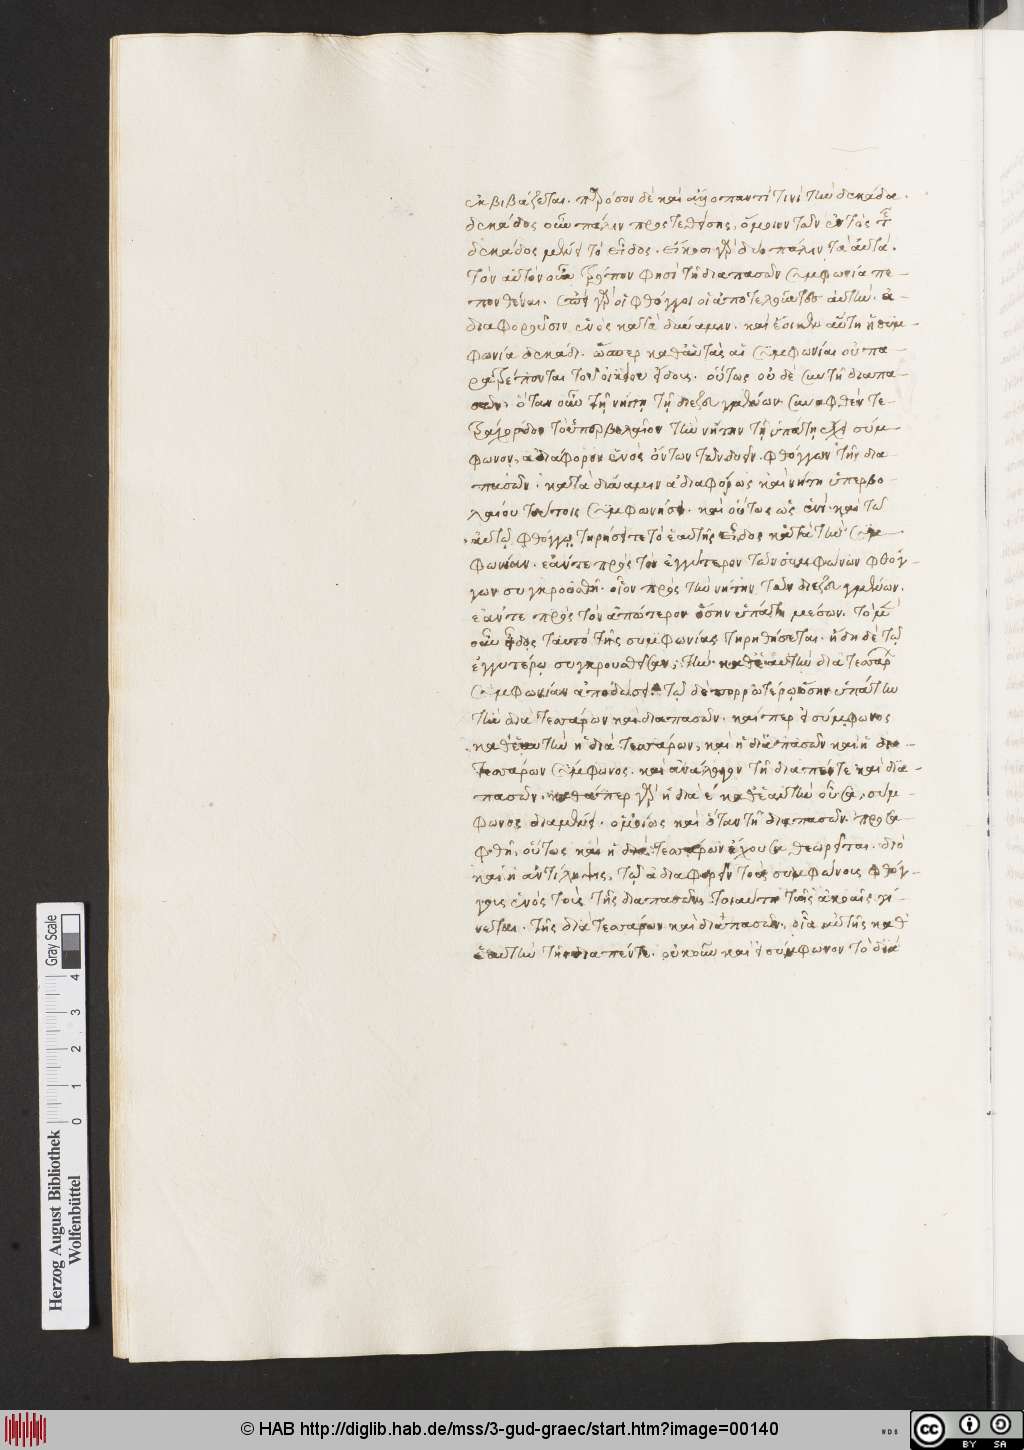 ἐκβιβάζεται. πρόσον δὲ καὶ τινὶ τὴν δεκάδα.
δεκάδος οὖν πάλιν προστεθείσης, ὅμοιον τῶν ἐντὸς τῆς
δεκάδος μένει τὸ εἶδος. εἴκοσι γὰρ δύο πάλιν τὰ αὐτά.
τὸν αὐτὸν οὖν τρόπον φησὶ τῇ διαπασῶν συμφωνία πε-
πονθέναι. γὰρ οἱ φθόγγοι οἱ ἀποτελοῦντες αὐτὴν. ἀ-
διαφοροῦσιν ἑνὸς κατὰ δύναμιν. καὶ ἔοικεν αὕτη ἡ συμ-
φωνία δεκάδι. ὥσπερ καθ' αὑτὰς αἱ συμφωνίαι οὐ πα-
ρατρέπονται τοῦ οἰκείου εἴδους. οὕτως οὐδὲ σὺν τῇ διαπα-
σῶν. ὅταν οὖν τῇ νήτῃ τῇ διεζευγμένων συναφθὲν τε-
τράχορδον τὸ ὑπερβολαίων τὴν νήτην τῇ ὑπάτῃ ἔχει σύμ-
φωνον, ἀδιάφορον ἑνὸς ὄντων τῶν δυεῖν φθόγγων τῆς δια-
πασῶν. κατὰ δύναμιν ἀδιαφόρως καὶ νήτη ὑπερβο-
λαίου τούτοις συμφωνήσει. καὶ οὕτως ὡς ἑνί. καὶ τῷ
αὐτῷ φθόγγῳ τηρήσει τε τὸ ἑαυτῆς εἶδος κατὰ τὴν συμ-
φωνίαν. ἐάν τε πρὸς τὸν ἐγγύτερον τῶν συμφώνων φθόγ-
γων συγκρουσθῇ. οἷον πρὸς τὴν νήτην τῶν διεζευγμένων.
ἐάν τε πρὸς τὸν ἀπώτερον ὅσην ὑπάτη μέσων. τὸ μὲν
οὖν εἶδος ταυτὸ τῆς συμφωνίας τηρηθήσεται. ἤδη δὲ τῷ
ἐγγυτέρῳ συγκρουσθεῖσαν, τὴν καθ' ἑαυτὴν διὰ τεσσάρων
συμφωνίαν ἀποδώσει. τῷ δὲ πορρωτέρω ὅσην ὑπάτην
τὴν διὰ τεσσάρων καὶ διαπασῶν. καίπερ εἰ σύμφωνος
καθ' ἑαυτὴν ἡ διὰ τεσσάρων, καὶ ἡ διαπασῶν καὶ ἡ διὰ
τεσσάρων σύμφωνος. καὶ ἀνάλογον τῇ διαπέντε καὶ δια-
πασῶν. καθάπερ γὰρ ἡ διὰ ε καθ' ἑαυτὴν οὖσα, σύμ-
φωνος διαμένει. ὁμοίως καὶ ὅταν τῇ διαπασῶν προσα-
φθῇ, οὕτως καὶ ἡ διὰ τεσσάρων ἔχουσα θεωρεῖται. διὸ
καὶ ἡ ἀντίληψις, τῷ ἀδιαφορεῖν τοὺς συμφώνους φθόγ-
γοις ἑνὸς τοὺς τῆς διαπασῶν, τοιαύτη ταῖς ἀκοαῖς γί-
νεται. τῆς διὰ τεσσάρων καὶ διαπασῶν, οἵα αὐτῆς καθ'
ἑαυτὴν τῆς διαπέντε. οὐκοῦν καὶ εἰ σύμφωνον τὸ διὰ
Herzog August Bibliothek
Wolfenbüttel
0 1 2 3 4
Gray Scale
© HAB http://diglib.hab.de/mss/3-gud-graec/start.htm?image=00140
WDB
cc
BY SA